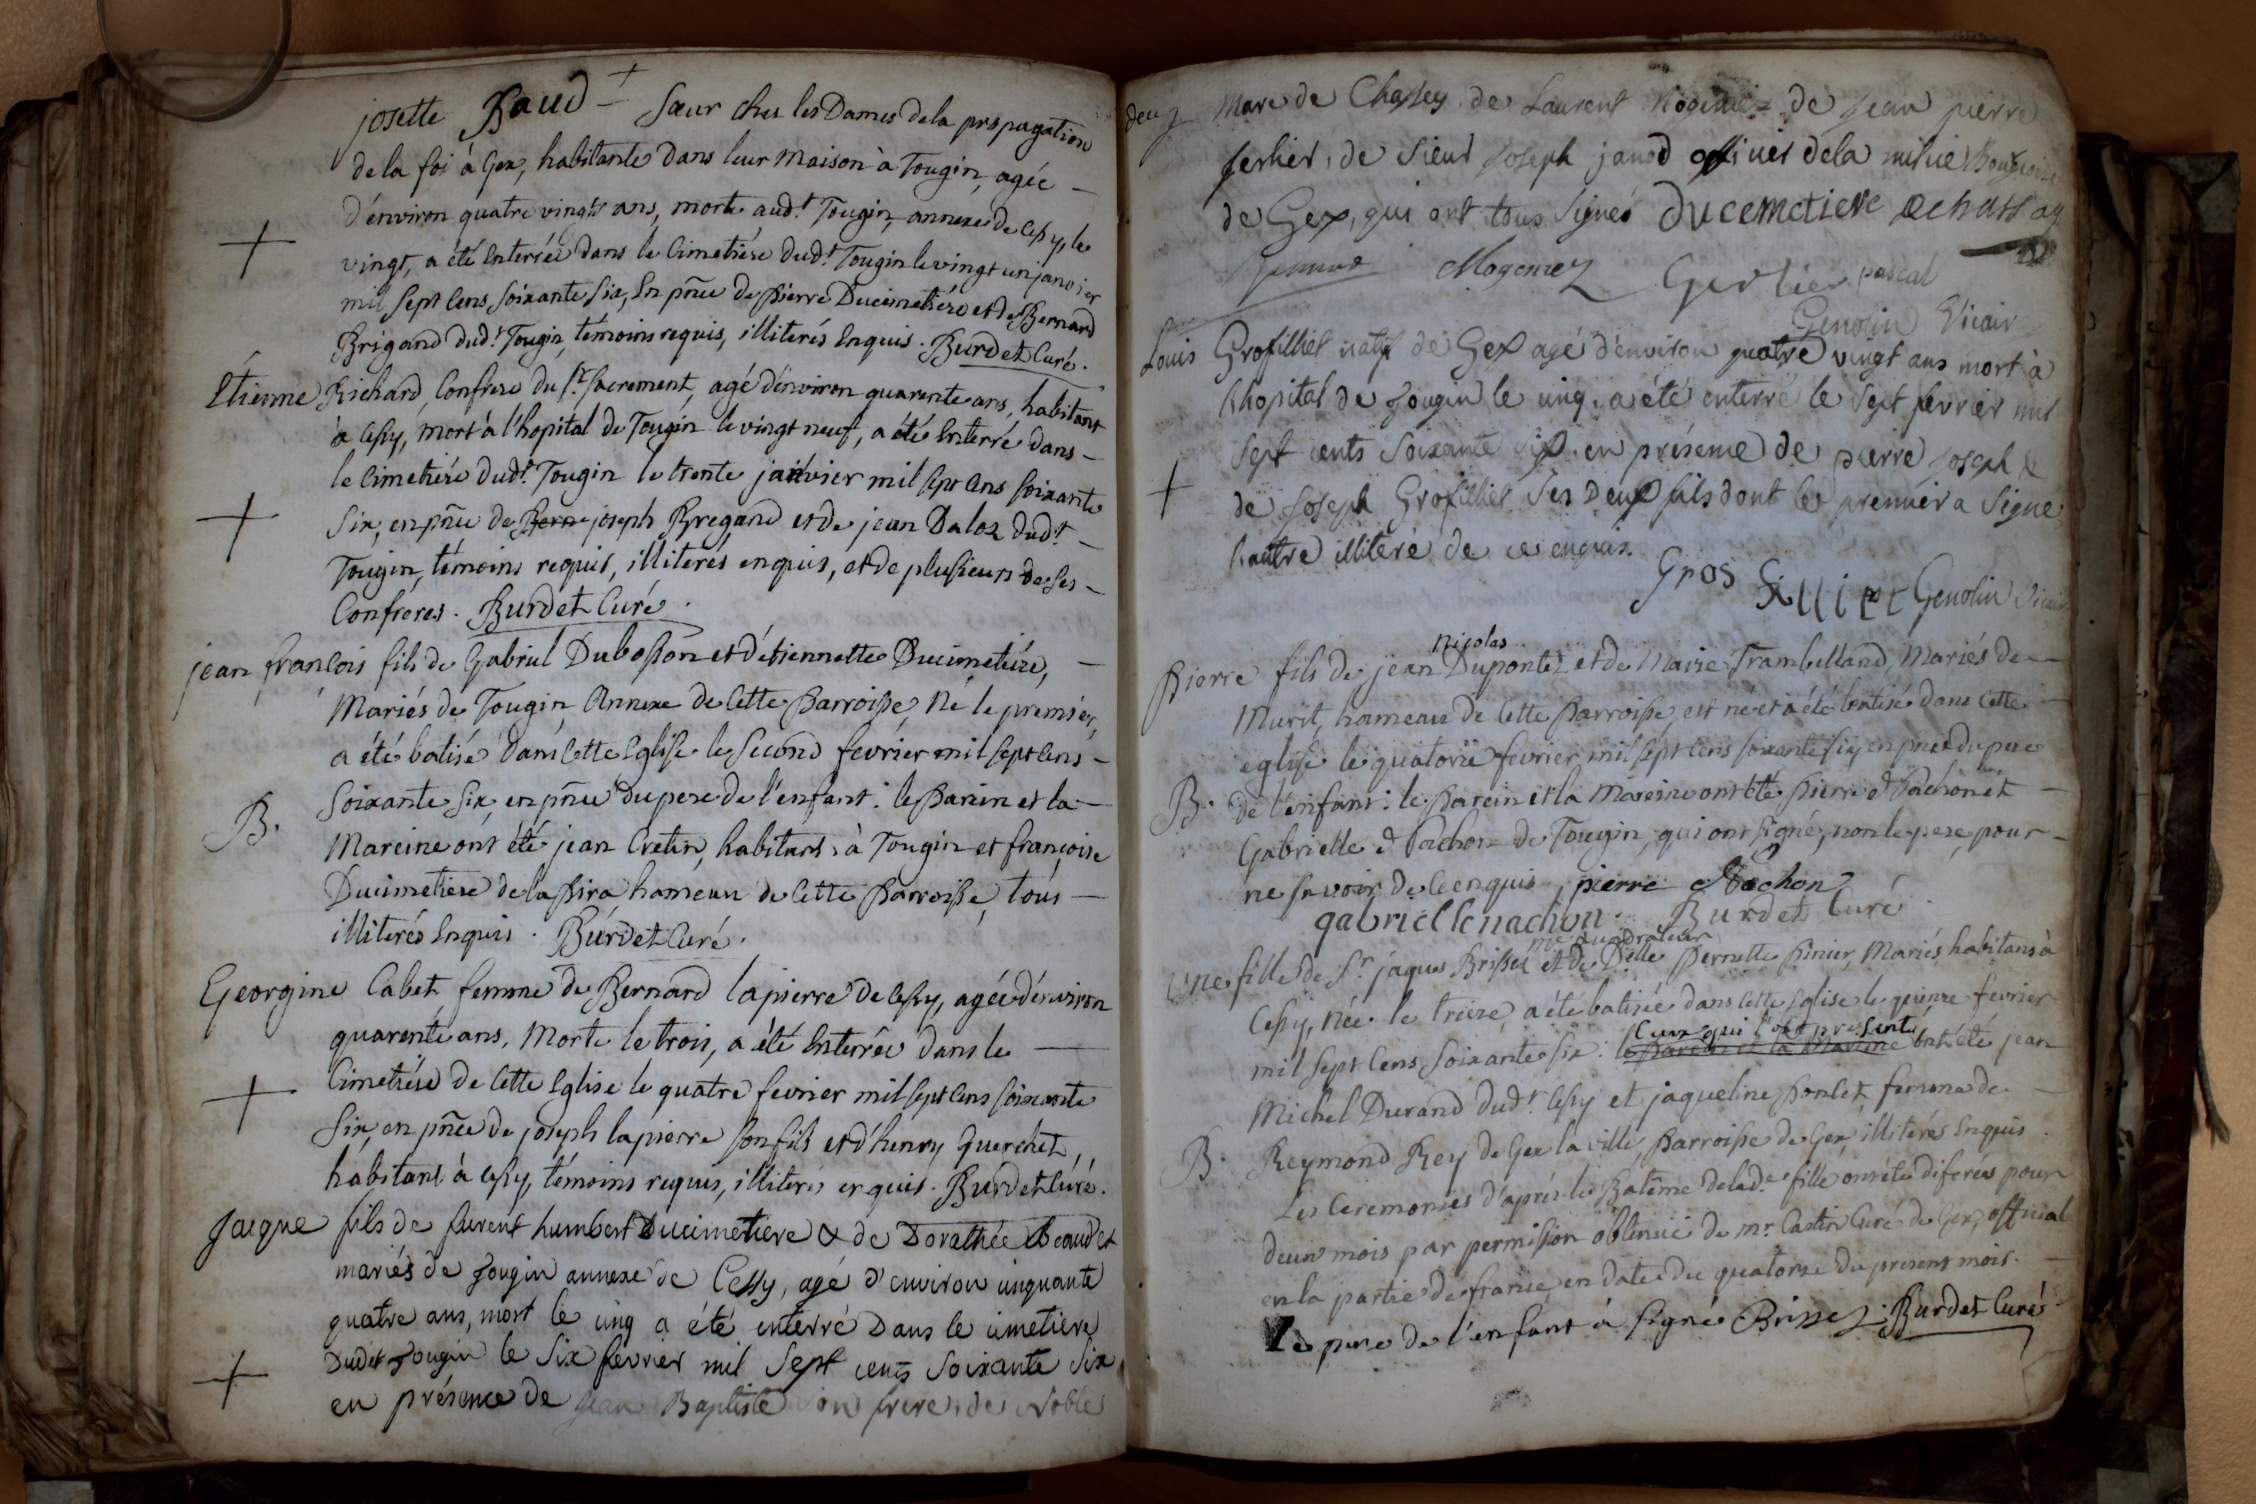 josette Baud + Sœur chez les Dames de la propagation
de la foi à Gex, habitante dans leur maison à Tougin, agée
d'énviron quatre vingts ans, morte aud.t Tougin, annexe de Cessy, le
vingt, a été Enterrée dans le Cimetiére dud.t Tougin le vingt un janvier
mil sept Cens soixante six, En pñce de pierre Ducimetiére et de Bernard
Brigand dud.t Tougin, témoins requis, illiterés Enquis. Burdet Curé.
Etienne Richard, Confrere du St. Sacrement, agé d'énviron quarente ans, habitant
à Cessy, mort à l'hopital de Tougin le vingt neuf, a été Enterré dans
le Cimetiére dud.t Tougin le trente janvier mil sept Cens soixante
Six, en pñce de Bern joseph Bregand et de jean Daloz dud.t
Tougin, témoins requis, illiterés enquis, et de plusieurs de ses
Confreres. Burdet Curé.
jean françois fils de Gabriel Dubosson et d'étiennette Ducimetiére,
Mariés de Tougin Annexe de Cette Parroisse, Né le premier,
a été batisé dans Cette Eglise le Second fevrier mil sept Cens
Soixante Six, en pñce du pere de l'enfant: le Parein et la
B. Mareine ont été jean Cretin, habitant à Tougin et françoise
Ducimetiere de la Pira hameau de Cette Parroisse, tous
illiterés Enquis. Burdet Curé.
Georgine Cabet, femme de Bernard lapierre de Cessy, agée d'énviron
quarente ans, Morte le trois, a été Enterrée dans le
Cimetiére de Cette Eglise le quatre fevrier mil sept Cens soixante
Six, en pñce de joseph lapierre son fils et d'henry Querchet,
habitans à Cessy, témoins requis, illiterés enquis. Burdet Curé.
Jacque fils de furent humbert Ducimetiere & de Dorathée Beaudet
mariés de Tougin annexe de Cessy, agé d'environ cinquante
quatre ans, mort le cinq a été enterré Dans le cimetiere
Dudit Tougin le Six fevrier mil Sept cents Soixante Six
en présence de Jean Baptiste son frere, de Nobles
Marc de Chassey de Laurent Mogeniez de Jean pierre
gerlier, de Sieur Joseph janod officier de la milice Bourgeoise
de Gex, qui ont tous Signés Ducemetiere Dechassay
Mogeniez Gerlier pascal
Genolin Vicair
Louis Grosfilliet natif de Gex agé d'environ quatre vingt ans mort à
l'hopital de Tougin le cinq, a été enterré le Sept fevrier mil
Sept cents Soixante Six en présence de pierre joseph &
de Joseph Grosfilliet Ses Deux fils dont le premier a Signé
l'autre illiteré de ce enquis.
Gros Fillietz Genolin Vicair
Nicolas
Pierre fils de jean Dupontez et de Marie Trambelland, Mariés de
Murit, hameau de Cette Parroisse, est né et a été batisé dans Cette
eglise le quatorze fevrier mil sept Cens soixante six, en pñce du pere
B. de l'énfant: le Parein et la Mareine ont été Pierre Pachon et
Gabrielle Pachon de Tougin, qui ont signé, non le pere, pour
ne savoir, de Ce enquis pierre Pachon
gabriellenachon Burdet Curé.
Une fille de Sr. jaques Brissez et de Delle Pernette Pinier, Mariés habitans à
Cessy, Née le treize, a été batisée dans Cette Eglise le quienze fevrier
Ceux qui l'ont présenté
mil sept Cens soixante six: le Parein et la Mareine ont été jean
Michel Durand dud.t Cessy et jaqueline Ponlet femme de
B. Reymond Rey de Gex la ville, Parroisse de Gex, illiterés Enquis.
Les Ceremonies d'aprés le Batême de lad.e fille ont été diferées pour
deux mois par permission obtenüe de mr. Castin Curé de Gex, official
en la partie de france, en date du quatorze du present mois.
Le pere de l'enfant a signé Brissez. Burdet Curé